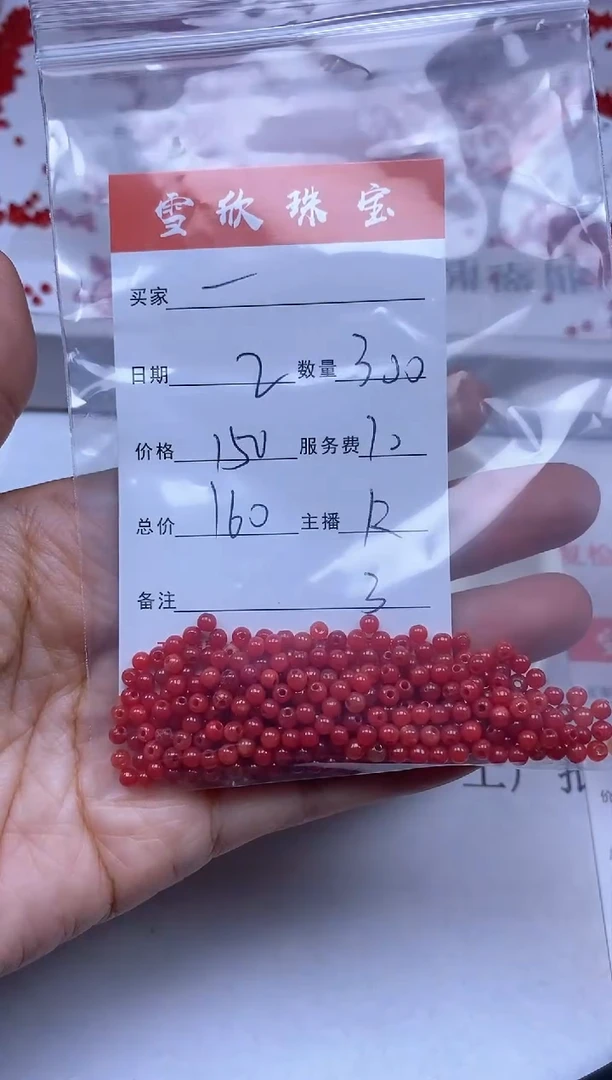 雪欣珠宝
买家 一
日期 2 数量 300
价格 150 服务费 10
总价 160 主播 R
备注 3